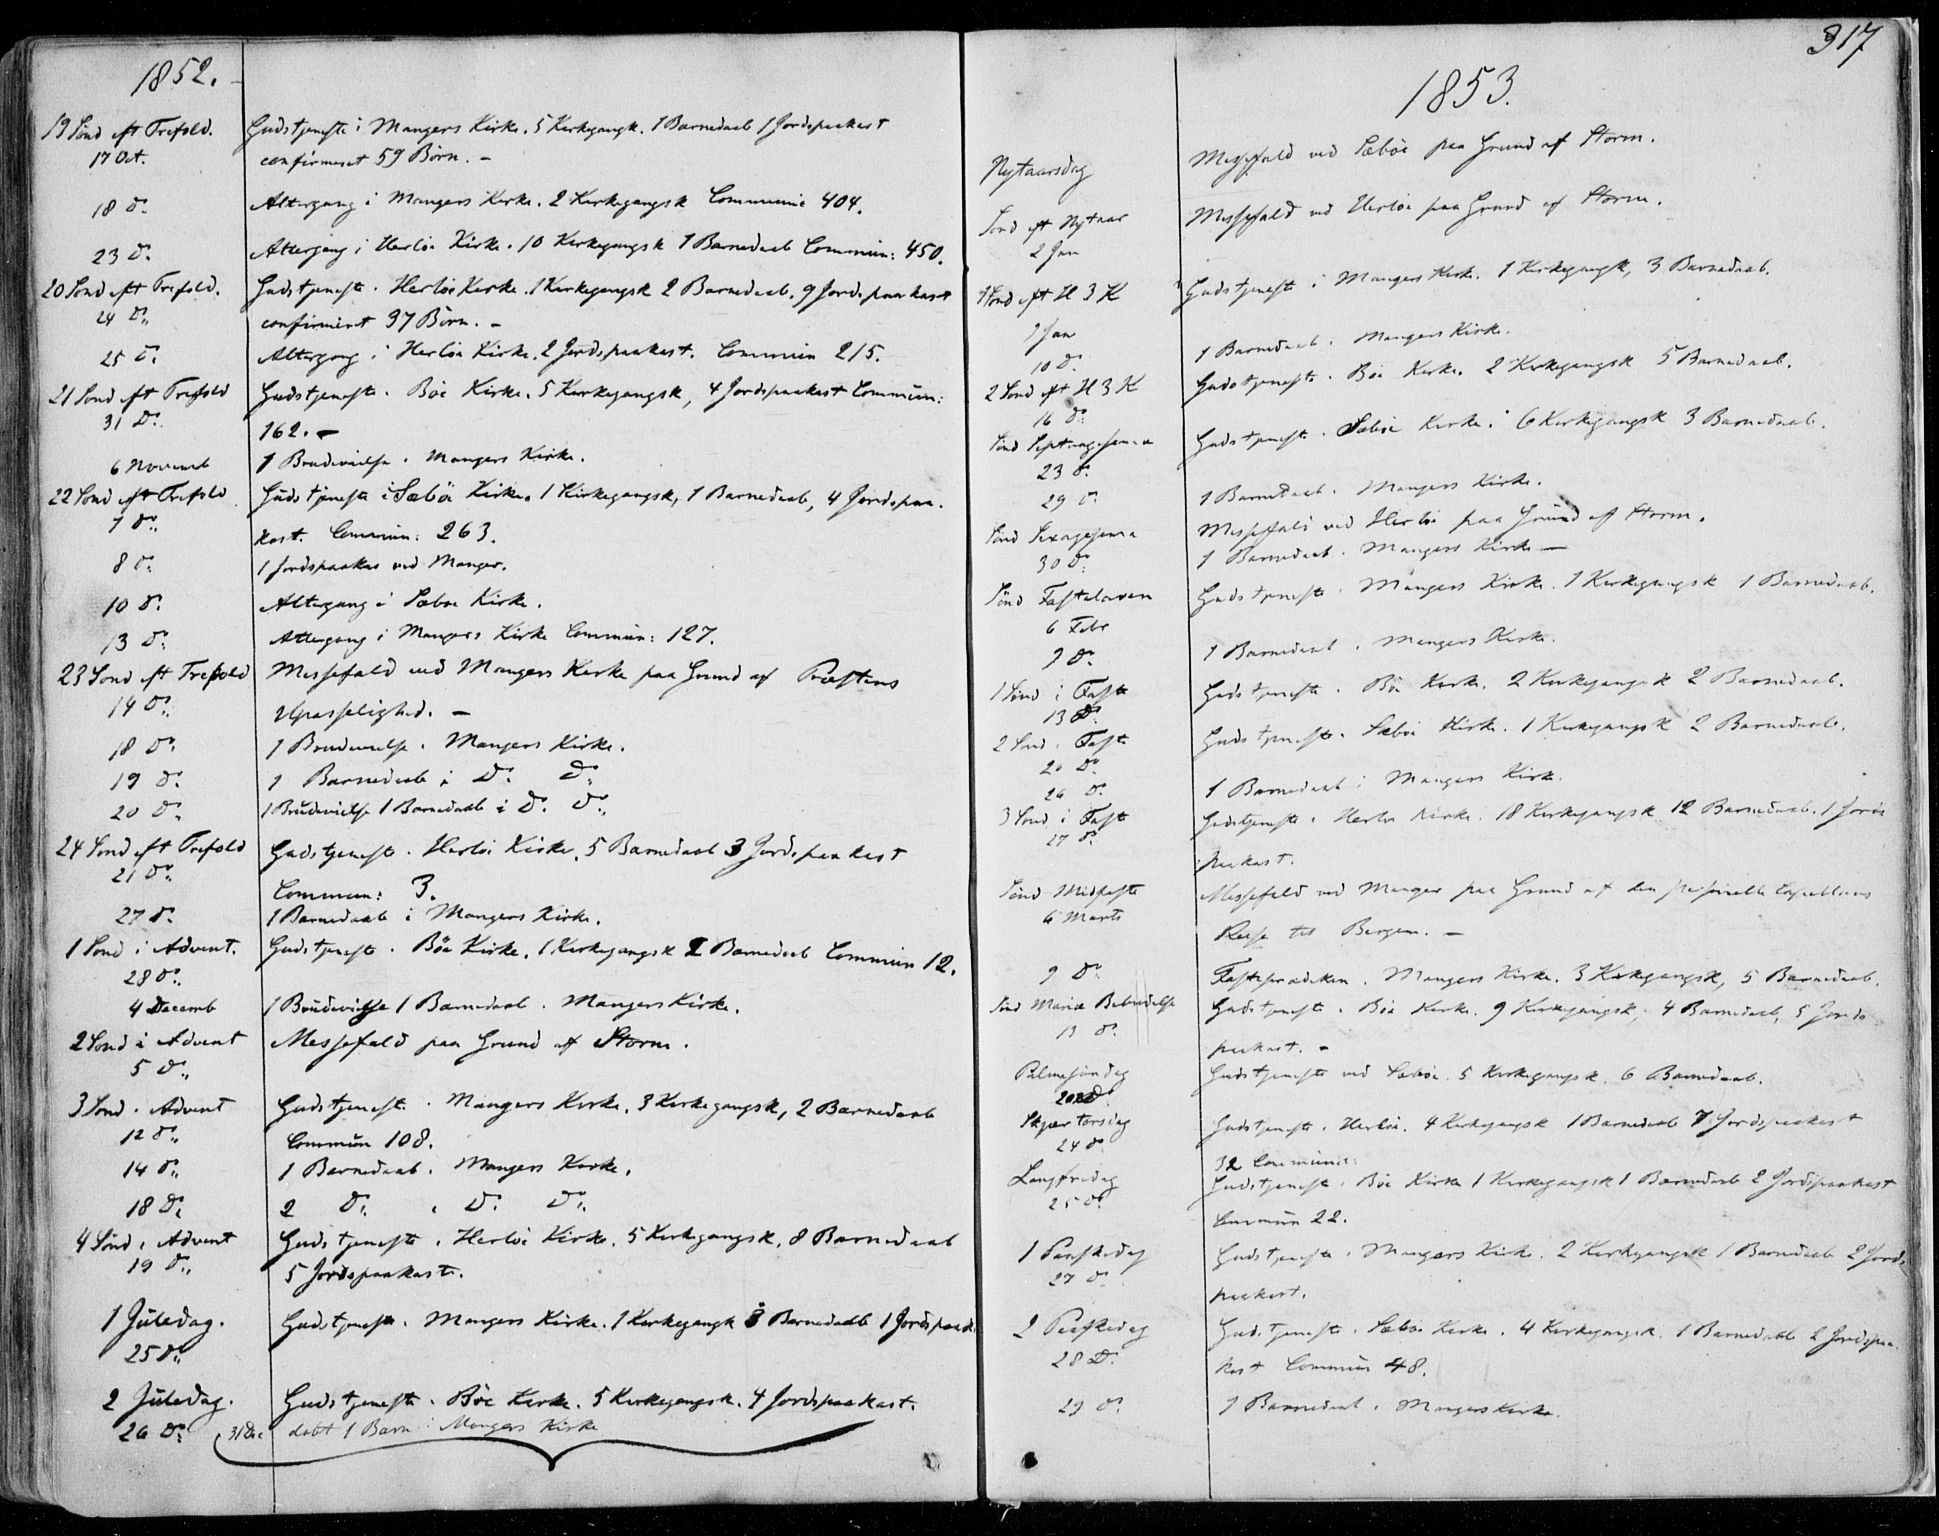 1852.
19 Sønd eft Trefold. Gudstjeneste i Mangers Kirke. 5 Kirkegangsk. 1 Barnedaab 1 Jordspaakast
17 Oct. confirmeret 59 Børn. –
18 D: Altergang i Mangers Kirke. 2 Kirkegangsk Communic 404.
23 D: Altergang i Herløe Kirke. 10 Kirkegangsk 1 Barnedaab Commun: 450.
20 Sønd eft Trefold. Gudstjeneste i Herløe Kirke. 1 Kirkegangsk 2 Barnedaab. 9 Jordspaakast
24 D: confirmeret 37 Børn. –
25 D: Altergang i Herløe Kirke. 2 Jordspaakast. Commun 215.
21 Sønd eft Trefold Gudstjeneste i Bøe Kirke. 5 Kirkegangsk, 4 Jordspaakast Commun:
31 D: 162. –
6 Novemb 1 Brudevielse i Mangers Kirke.
22 Sønd eft Trefold Gudstjeneste i Sæbøe Kirke. 1 Kirkegangsk, 1 Barnedaab, 4 Jordspaa-
7 D: kast. Commun: 263.
8 D: 1 Jordspaakas ved Manger.
10 D: Altergang i Sæbøe Kirke.
13 D: Altergang i Mangers Kirke Commun: 127.
23 Sønd eft Trefold Messefald ved Mangers Kirke paa Grund af Præstens
14 D: Upasselighed. –
18 D: 1 Brudevielse i Mangers Kirke.
19 D: 1 Barnedaab i D: D:
20 D: 1 Brudevielse 1 Barnedaab i D: D:
24 Sønd eft Trefold Gudstjeneste i Herløe Kirke. 5 Barnedaab 3 Jordspaakast
21 D: Commun: 3.
27 D: 1 Barnedaab i Mangers Kirke.
1 Sønd i Advent. Gudstjeneste i Bøe Kirke. 1 Kirkegangsk 2 Barnedaab Commun 12.
28 D:
4 Decemb 1 Brudevielse 1 Barnedaab i Mangers Kirke.
2 Sønd i Advent Messefald paa Grund af Storm.
5 D:
3 Sønd i Advent Gudstjeneste i Mangers Kirke. 3 Kirkegangsk, 2 Barnedaab
12 D: Commun 108.
14 D: 1 Barnedaab i Mangers Kirke.
18 D: 2 D: i D: D:
4 Sønd i Advent Gudstjeneste i Herløe Kirke. 5 Kirkegangsk. 8 Barnedaab
19 D: 5 Jordspaakast.
1 Juledag. Gudstjeneste i Mangers Kirke. 1 Kirkegangk 3 Barnedaab 1 Jordspaak.
25 D:
2 Juledag. Gudstjeneste i Bøe Kirke. 5 Kirkegangsk. 4 Jordspaakast.
26 D:
31 Dec døbt 1 Barn i Mangers Kirke
317
1853.
Nytaarsdag Messefald ved Sæbøe paa Grund af Storm.
Sønd eft Nytaar Messefald ved Herløe paa Grund af Storm.
2 Jan
1 Sønd eft H 3 K Gudstjeneste i Mangers Kirke. 1 Kirkegangsk, 3 Barnedaab.
9 Jan
10 D: 1 Barnedaab i Mangers Kirke.
2 Sønd eft H 3 K Gudstjeneste i Bøe Kirke. 2 Kirkegangsk 5 Barnedaab.
16 D:
Sønd Septuagesima Gudstjeneste i Sæbøe Kirke. 6 Kirkegangsk 3 Barnedaab.
23 D:
29 D: 1 Barnedaab i Mangers Kirke.
Sønd Sexagesima Messefald ved Herløe paa Grund af Storm.
30 D: 1 Barnedaab i Mangers Kirke –
Sønd Fastelaven Gudstjeneste i Mangers Kirke. 1 Kirkegangsk 1 Barnedaab.
6 Febr
9 D: 1 Barnedaab i Mangers Kirke.
1 Sønd i Faste Gudstjeneste i Bøe Kirke. 2 Kirkegangsk 2 Barnedaab.
13 D:
2 Sønd i Faste Gudstjeneste i Sæbøe Kirke. 1 Kirkegangsk 2 Barnedaab.
20 D:
26 D: 1 Barnedaab i Mangers Kirke.
3 Sønd i Faste Gudstjeneste i Herløe Kirke. 18 Kirkegangsk 12 Barnedaab. 1 Jords
27 D: paakast.
Sønd Midfaste Messefald ved Manger paa Grund af den personelle Capellans
6 Marts Reise til Bergen. –
9 D: Fasteprædiken i Mangers Kirke. 3 Kirkegangsk, 5 Barnedaab.
Sønd Mariæ Bebudelse Gudstjeneste i Bøe Kirke. 9 Kirkegangsk, 4 Barnedaab, 5 Jords
13 D: paakast. –
Palmesøndag Gudstjeneste ved Sæbøe. 5 Kirkegangsk. 6 Barnedaab.
20 D:
Skjærtorsdag Gudstjeneste i Herløe. 4 Kirkegangsk 1 Barnedaab 7 Jordspaakast
24 D: 32 Communic:
Langfredag Gudstjeneste i Bøe Kirke 1 Kirkegangsk 1 Barnedaab 2 Jordspaakast
25 D: Commun 22.
1 Paaskedag Gudstjeneste i Mangers Kirke. 2 Kirkegangsk 1 Barnedaab 2 Jords
27 D: paakast.
2 Paaskedag Gudstjeneste i Sæbøe Kirke. 4 Kirkegangsk. 1 Barnedaab 2 Jordspaa-
28 D: kast Commun 48.
29 D: 1 Barnedaab i Mangers Kirke.